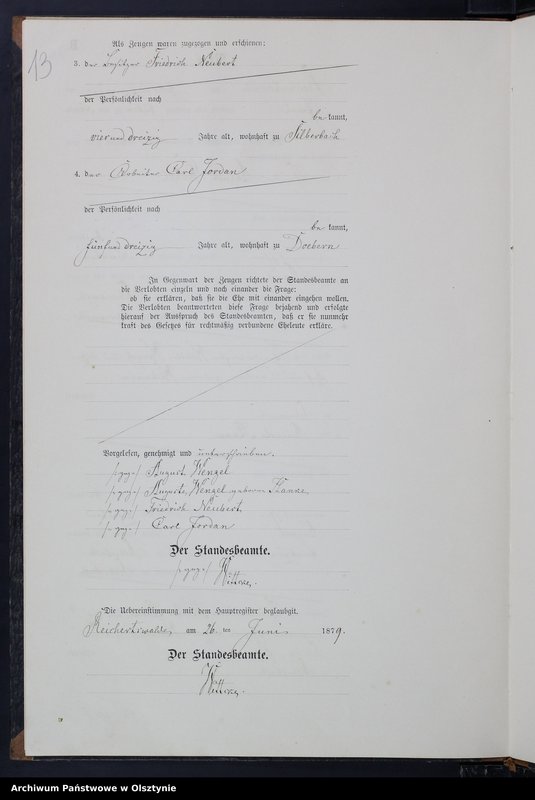 13
Als Zeugen waren zugezogen und erschienen:
3. der Besitzer Friedrich Neubert
der Persönlichkeit nach
be kannt,
vierund dreizig Jahre alt, wohnhaft zu Silberbach
4. der Arbeiter Carl Jordan
der Persönlichkeit nach
be kannt,
fünfund dreizig Jahre alt, wohnhaft zu Doebern
In Gegenwart der Zeugen richtete der Standesbeamte an
die Verlobten einzeln und nach einander die Frage:
ob sie erklären, daß sie die Ehe mit einander eingehen wollen.
Die Verlobten beantworteten diese Frage bejahend und erfolgte
hierauf der Ausspruch des Standesbeamten, daß er sie nunmehr
kraft des Gesetzes für rechtmäßig verbundene Eheleute erkläre.
Vorgelesen, genehmigt und unterschrieben.
/:gez:/ August Wenzel
/:gez:/ Auguste Wenzel geborne
/:gez:/ Friedrich Neubert
/:gez:/ Carl Jordan
Der Standesbeamte.
/:gez:/
Die Uebereinstimmung mit dem Hauptregister beglaubigt.
Reichertswalde, am 26. ten Juni 1879.
Der Standesbeamte.
Archiwum Państwowe w Olsztynie